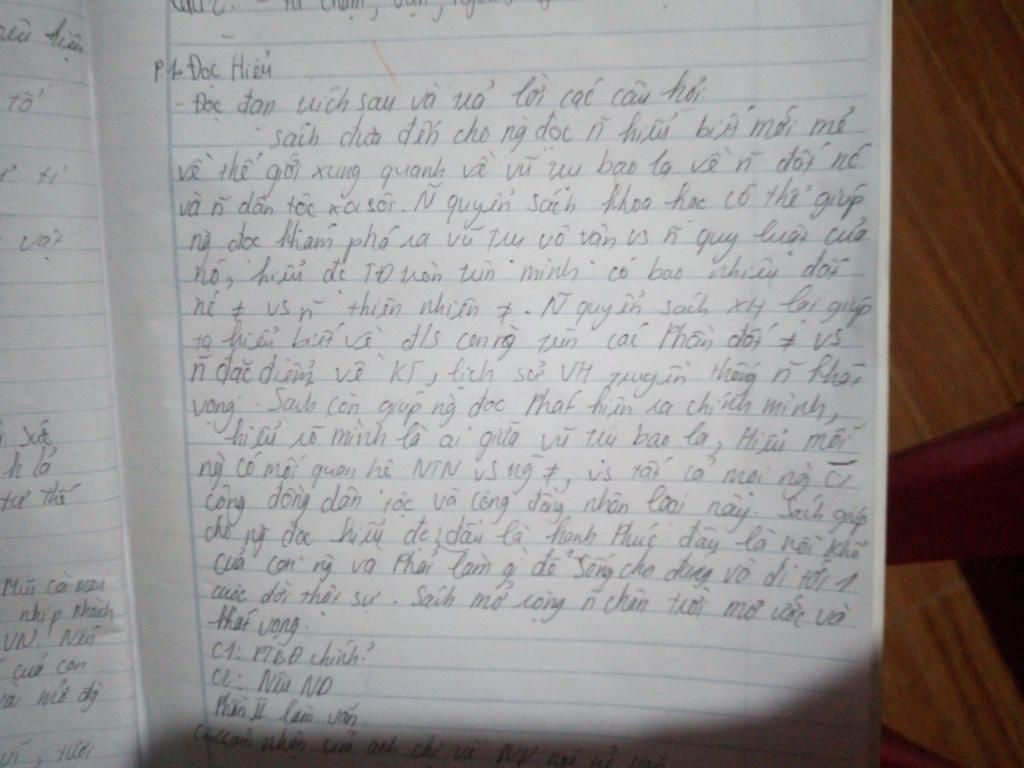 P1. Đọc Hiểu
- Đọc đoạn trích sau và trả lời các câu hỏi.
sách đưa đến cho ng đọc ~n hiểu biết mới mẻ
về thế giới xung quanh về vũ trụ bao la về ~n đất nc
và ~n dân tộc xa sôi. ~N quyển sách khoa học có thể giúp
ng đọc khám phá ra vũ trụ vô vàn vs ~n quy luật của
nó, hiểu đc TĐ tròn trên mình có bao nhiêu đất
nc ≠ vs ~n thiên nhiên ≠. ~N quyển sách XH lại giúp
ta hiểu biết về đ/s con ng trên các Phần đất ≠ vs
~n đặc điểm về KT, lịch sử VH truyền thống ~n khát
vọng. Sách còn giúp ng đọc Phát hiện ra chính mình,
hiểu rõ mình là ai giữa vũ trụ bao la, Hiểu mỗi
ng có mối quan hệ NTN vs ng ≠, vs tất cả mọi ng
cộng đồng dân tộc và cộng đồng nhân loại này. Sách giúp
cho ng đọc hiểu đc đâu là hạnh Phúc đâu là nỗi khổ
của con ng và Phải làm gì để sống cho đúng và đi tới 1
cuộc đời thật sự. Sách mở rộng ~n chân trời mơ ước và
khát vọng.
C1: PTBĐ chính?
C2: Nêu ND
Phần II làm văn
cảm nhận của anh chị về